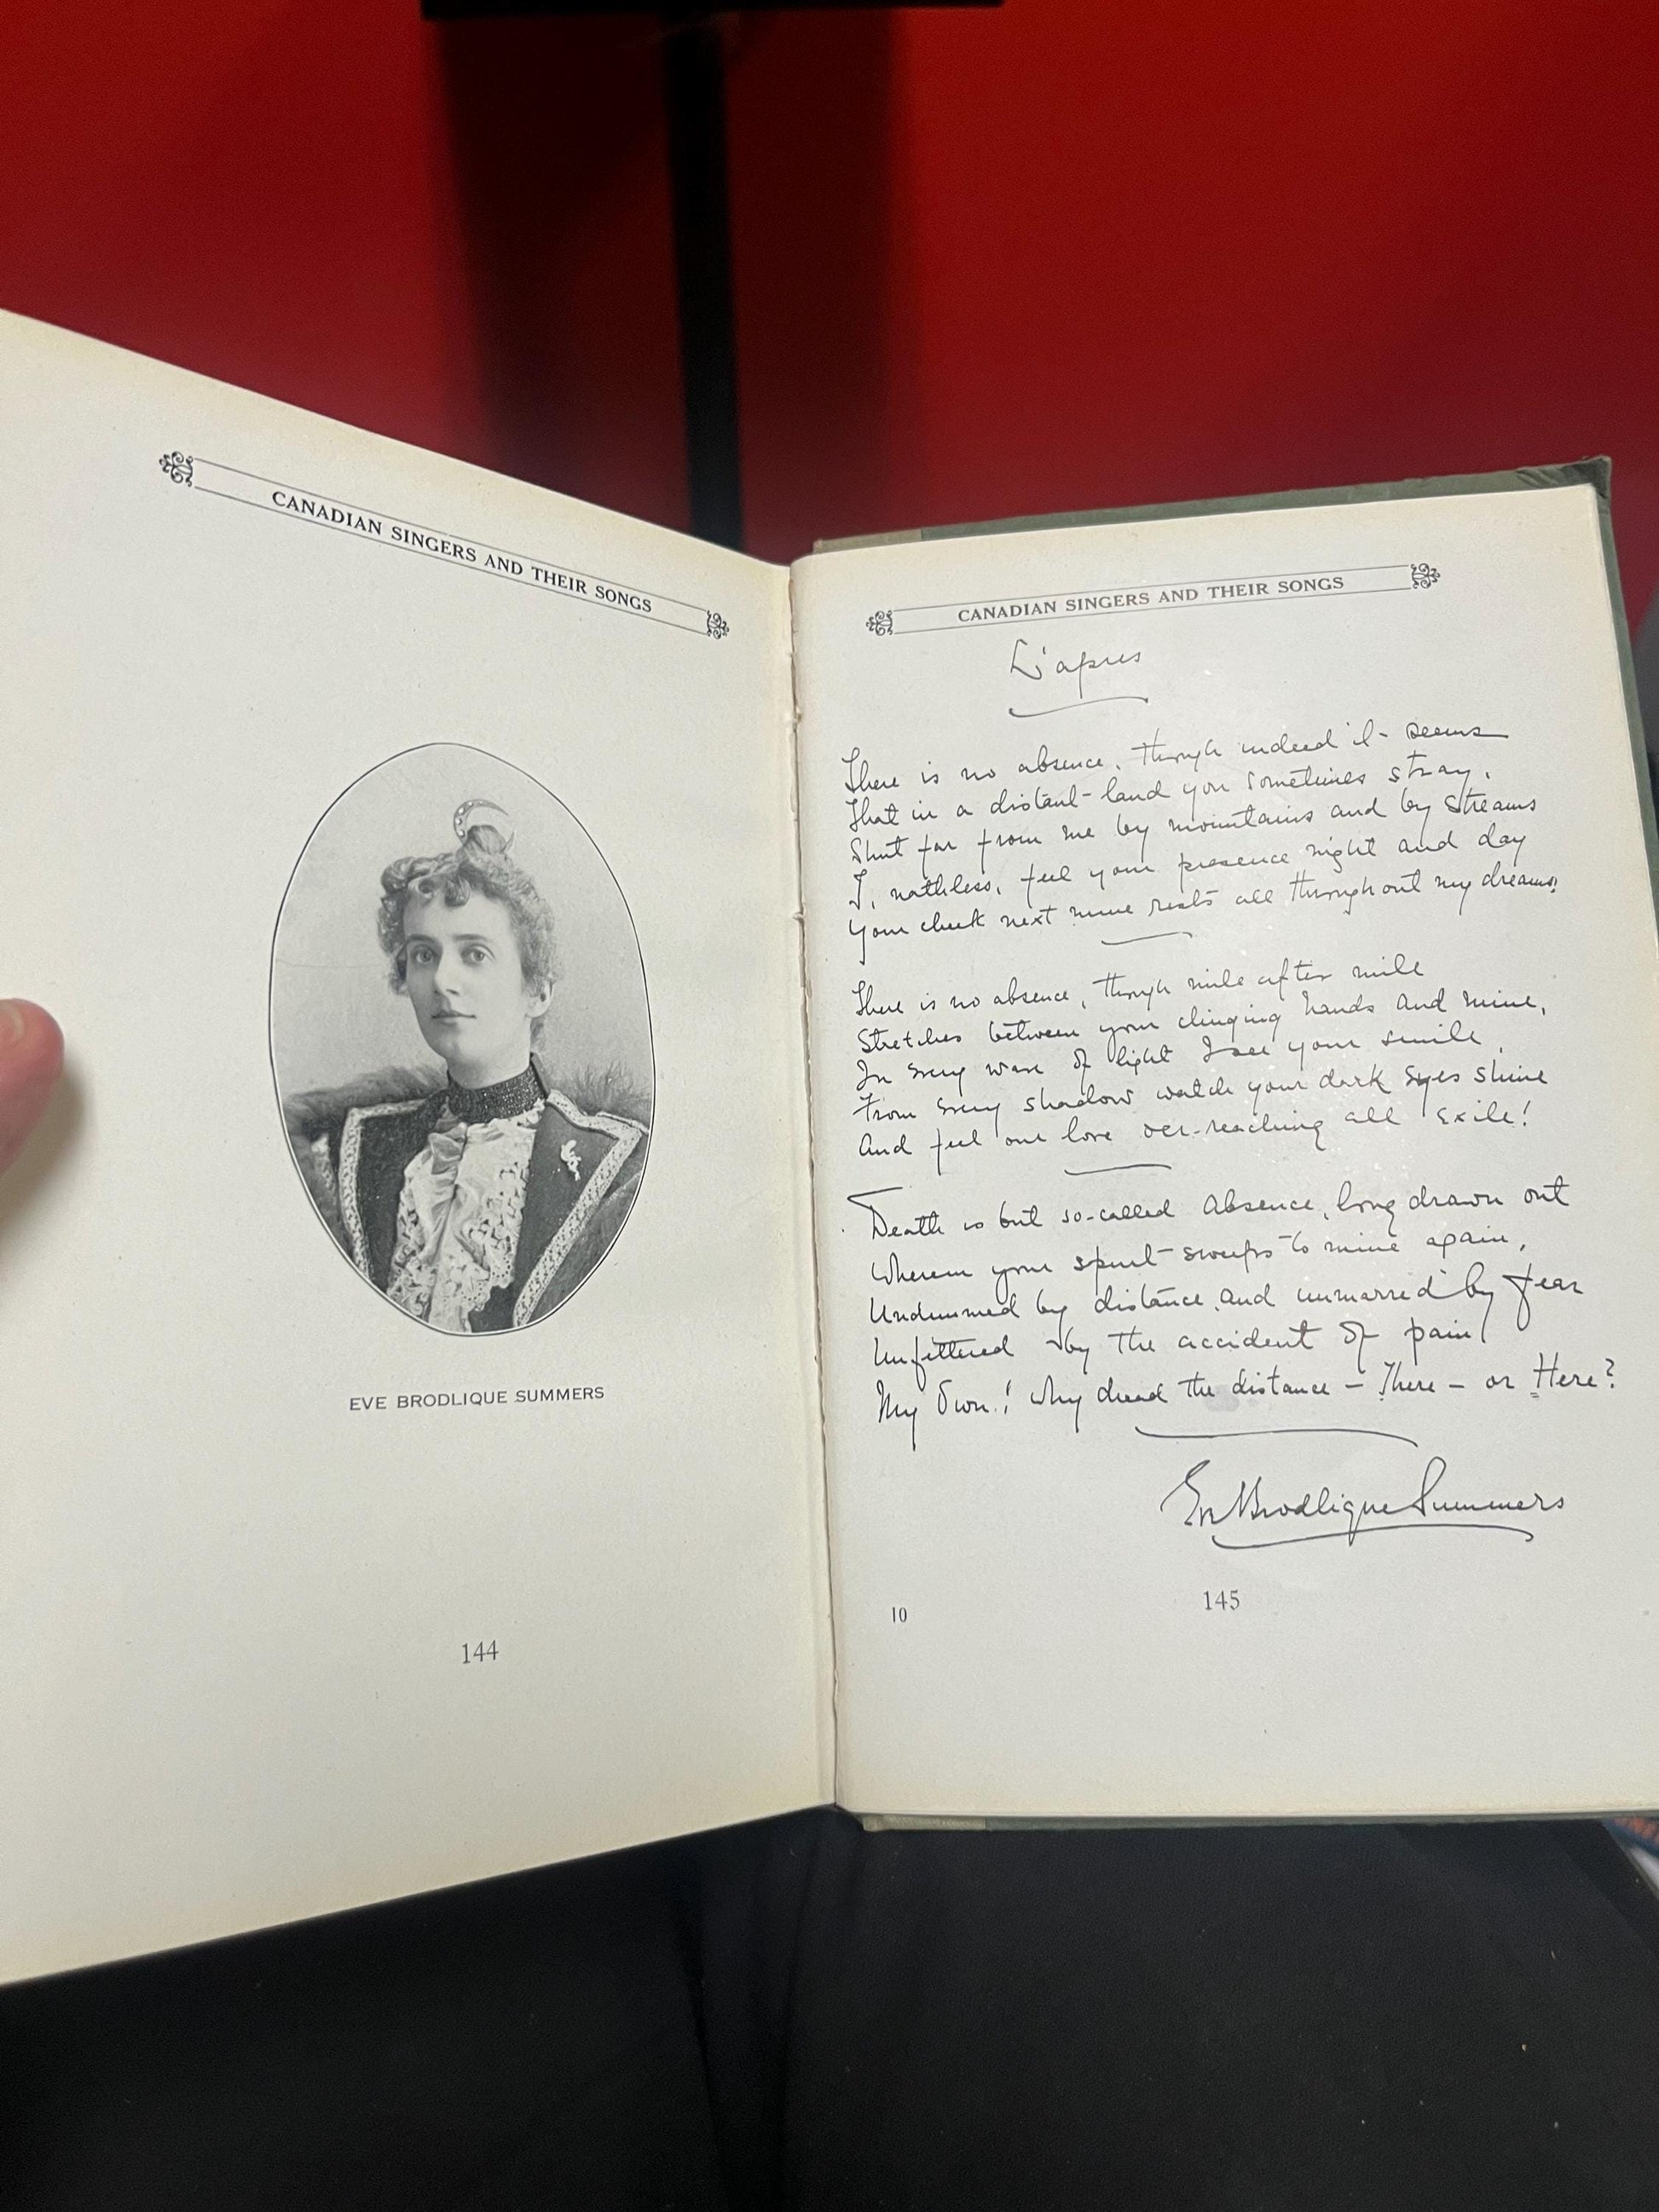 CANADIAN SINGERS AND THEIR SONGS
EVE BRODLIQUE SUMMERS
144
CANADIAN SINGERS AND THEIR SONGS
L'apres
There is no absence, though indeed it seems
That in a distant land you sometimes stray,
Shut far from me by mountains and by streams
I, nathless, feel your presence night and day
Your cheek next mine rests all throughout my dreams.
There is no absence, though mile after mile
Stretches between your clinging hands and mine,
In every wave of light I see your smile,
From every shadow watch your dark eyes shine
And feel our love oer-reaching all exile!
Death is but so-called Absence, long drawn out
Wherein your spirit sweeps to mine again,
Undimmed by distance, and unmarred by fear
Unfettered by the accident of pain
My Own! Why dread the distance – There – or Here?
Eve Brodlique Summers
10
145